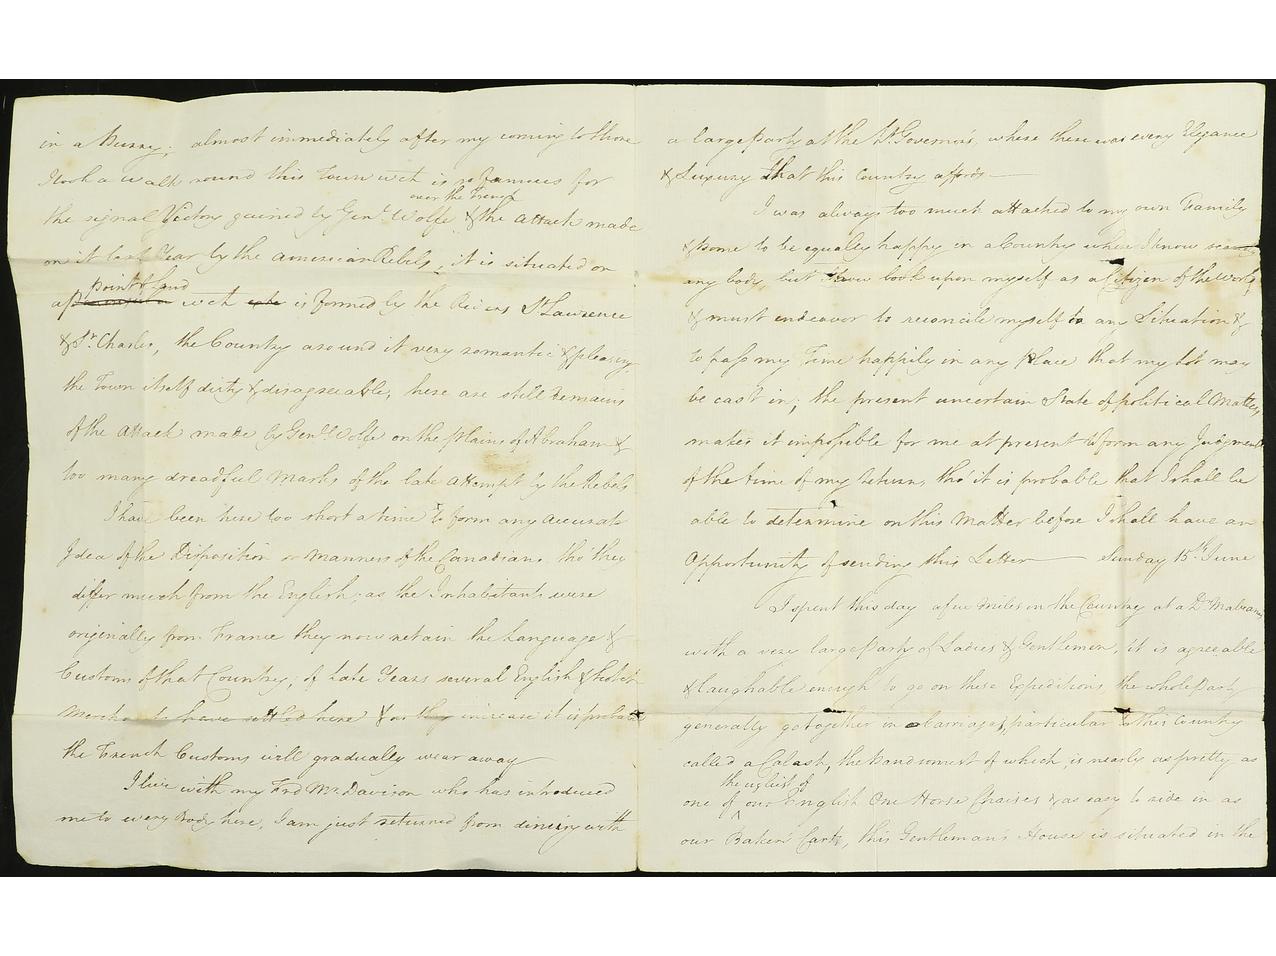 in a Hurry; almost immediately after my coming to Shore
I took a walk round this Town wch is so famous for
over the French
the signal Victory gained by Genl. Wolfe & the Attack made
on it last Year by the American Rebels, it is situated on
point of Land
a wch is formed by the Rivers St Lawrence
& St. Charles, the Country around it very romantic & pleasing
the Town itself dirty & disagreeable, here are still Remains
of the Attack made by Genl. Wolfe on the plains of Abraham &
too many dreadful Marks of the late Attempt by the Rebels
I have been here too short a time to form any Accurate
Idea of the Disposition or Manners of the Canadians, tho' they
differ much from the English; as the Inhabitants were
originally from France they now retain the Language &
Customs of that Country, of late Years several English & Scotch
Merchants have settled here & as they increase it is probable
the French Customs will gradually wear away
I live with my Frd Mr. Davison who has introduced
me to every Body here, I am just returned from dining with
a large Party at the Lt. Governor's, where there was every Elegance
& Luxury that this Country affords
I was always too much attached to my own Family
& Home to be equally happy in a Country where I know scarcely
any body, but I now look upon myself as a Citizen of the World,
& must endeavor to reconcile myself to any Situation &
to pass my Time happily in any Place that my lot may
be cast in; the present uncertain State of political Matters,
makes it impossible for me at present to form any Judgment
of the time of my Return, tho' it is probable that I shall be
able to determine on this Matter before I shall have an
Opportunity of sending this Letter Sunday 15th June
I spent this day a few Miles in the Country at a Dr.
with a very large Party of Ladies & Gentlemen, it is agreeable
& laughable enough to go on these Expeditions, the whole Party
generally go together in Carriages, particular to this Country
called a Calash, the handsomest of which is nearly as pretty as
the ugliest of
one of our English One Horse Chaises & as easy to ride in as
our Baker's Carts, this Gentleman's House is situated in the